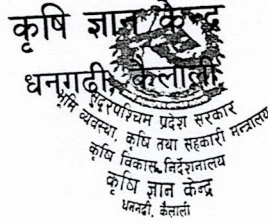 कृषि ज्ञान केन्द्र
धनगढी, कैलाली
सुदूरपश्चिम प्रदेश सरकार
भूमि व्यवस्था, कृषि तथा सहकारी मन्त्रालय
कृषि विकास निर्देशनालय
कृषि ज्ञान केन्द्र
धनगढी, कैलाली